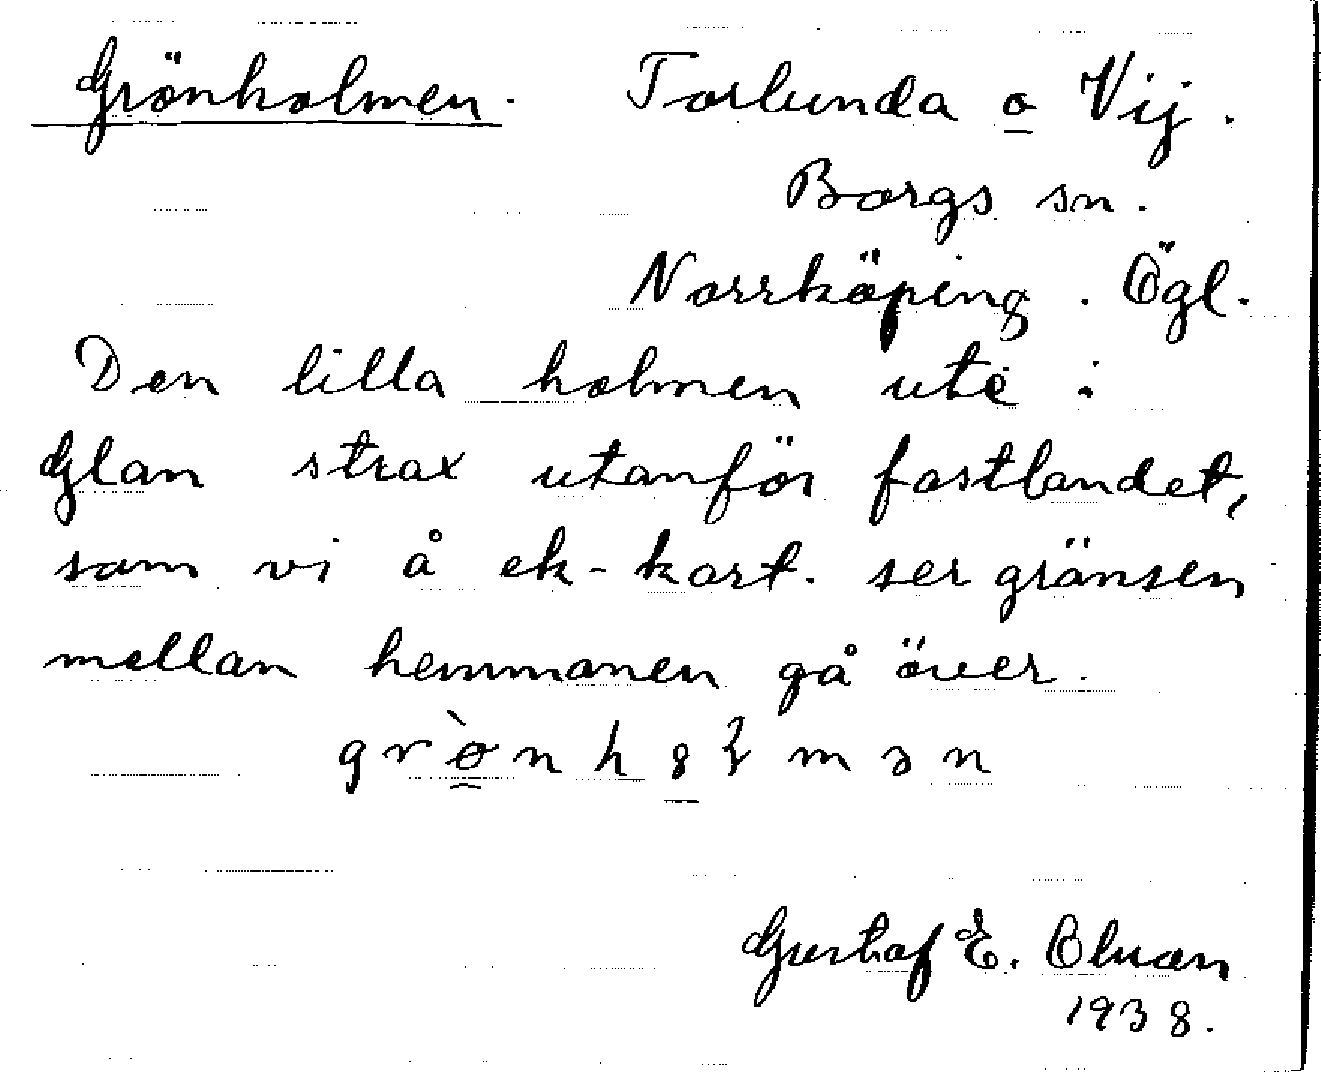 Grönholmen. Torlunda o Vij.
Borgs sn.
Norrköping. Ögl.
Den lilla holmen ute i
Glan strax utanför fastlandet,
som vi å ek-kart. ser gränsen
mellan hemmanen gå över.
Gustaf E. Olson
1938.